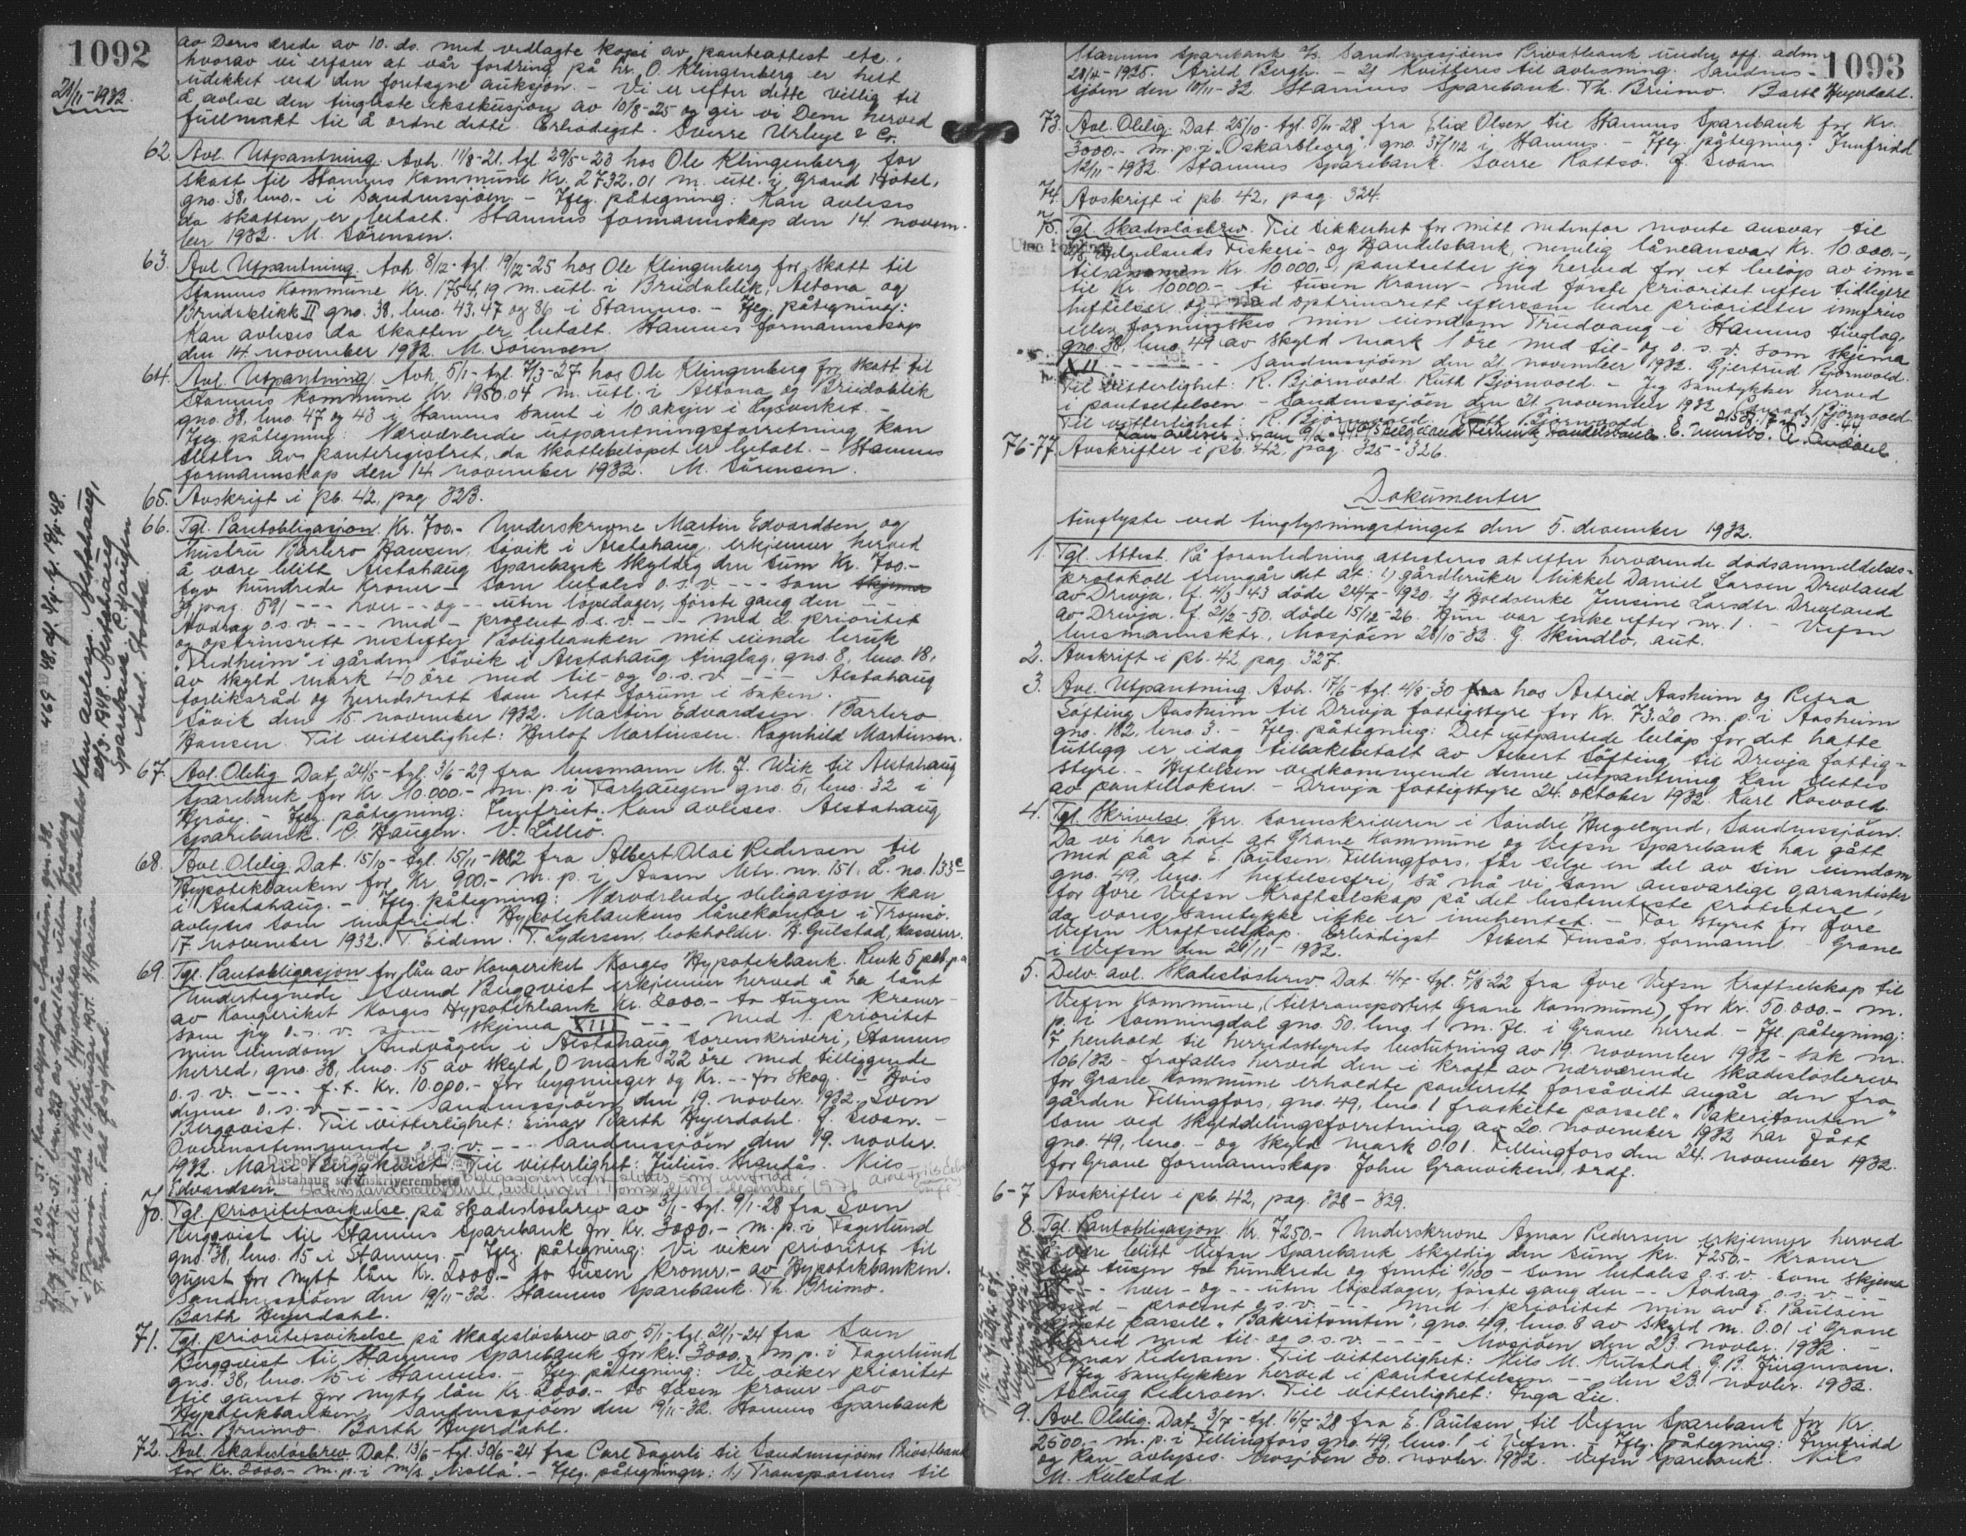 1092
21/11-1932.
av Deres ærede av 10. ds. med vedlagte kopi av panteattest etc.
hvorav vi erfarer at vår fordring på hr. O. Klingenberg er helt
udekket ved den foretagne auksjon. - Vi er efter dette villig til
å avlese den tinglæste eksekusjon av 10/8-25 og gir vi Dem herved
fullmakt til å ordne dette. Erbødigst. Sverre & Co.
62. Avl. Utpantning. Avh. 11/8-21. tgl. 29/5-23 hos Ole Klingenberg for
skatt til Stamnes kommune Kr. 2732.01 m. utl. i Grand Hotel,
gno. 38, bno. - i Sandnessjøen. - Ifflg. påtegning: Kan avleses
da skatten er betalt. Stamnes formannskap den 14. novem-
ber 1932. M. Sørensen.
63. Avl. Utpantning. Avh. 8/12- tgl. 19/12-25 hos Ole Klingenberg for skatt til
Stamnes kommune Kr. 1754,19 m. utl. i Breidablik, Altona og
Breidablikk II gno. 38, bno. 43. 47 og 86 i Stamnes. - Ifflg. påtegning:
Kan avleses da skatten er betalt. Stamnes formannskap
den 14. november 1932. M. Sørensen.
64. Avl. Utpantning. Avh. 5/1- tgl. 7/3-27 hos Ole Klingenberg for skatt til
Stamnes kommune Kr. 1950.04 m. utl. i Altona og Breidablik
gno. 38, bno. 47 og 43 i Stamnes samt i 10 aksjer i Lysverket. -
Ifflg. påtegning: Nærværende utpantningsforretning kan
slettes av panteregistret, da skattebeløpet er betalt. - Stamnes
formannskap den 14. november 1932. M. Sørensen.
65. Avskrift i pb. 42, pag. 323.
66. Tgl. Pantobligasjon. Kr. 700.- Underskrevne Martin Edvardsen og
hustru Barbro Hansen, Søvik i Alstahaug, erkjenner herved
å være blitt Alstahaug Sparebank skyldig den sum Kr. 700.-
syv hundrede Kroner - som betales o.s.v. - - - som skjema
pag. 591 - - - hver - - og - - uten løpedager, første gang den - - -
Avdrag o.s.v. - - - med - procent o.s.v. - - - med 2. prioritet
og optrinsrett nestefter Boligbanken mit eiende bruk
"Fredheim" i gården Søvik i Alstahaug tinglag, gno. 8, bno. 18,
av skyld mark 40 øre med til- og o.s.v. - - - Alstahaug
forliksråd og herredsrett som rett forum i saken.
Søvik den 15 november 1932. Martin Edvardsen. Barbro
Hansen. Til vitterlighet: Herlof Martinsen. Ragnhild Martinsen.
67. Avl. Oblig. Dat. 24/5- tgl. 3/6-29 fra lensmann M. J. Wik til Alstahaug
Sparebank for Kr. 10.000.- m. p. i Tarhaugen gno. 5, bno. 32 i
Herøy. - Ifflg. påtegning: Innfriet. Kan avleses. Alstahaug
Sparebank. C. Haugen. V. Lillio.
68. Avl. Oblig. Dat. 15/10- tgl. 15/11-1882 fra Albert Olai Pedersen til
Hypotekbanken for Kr. 900.- m. p. i Aasen Mtr. nr. 151. L. no. 133c
i Alstahaug. - Ifflg. påtegning: Nærværende obligasjon kan
avlyses som innfridd. Hypotekbankens lånekontor i Tromsø.
17. november 1932. T. Eidem. T. Sydersen, bokholder. H. Gulstad, kasserer.
69. Tgl. Pantobligasjon for lån av Kongeriket Norges Hypotekbank. Rente 5 pct. p.a.
Undertegnede Svend Bergqvist erkjenner herved å ha lånt
av Kongeriket Norges Hypotekbank Kr. 2000.- to tusen kroner -
som jeg o.s.v. som skjema XIII - - - med 1. prioritet
min eiendom Sandvågen i Alstahaug sorenskriveri, Stamnes
herred, gno. 38, bno. 15 av skyld, 0 mark 22 øre med tilliggende
o.s.v. - - - - f. t. Kr. 10.000.- for bygninger og Kr. - - for skog. - Hvis
denne o.s.v. - - - - Sandnessjøen den 19. novbr. 1932. Sven
Bergqvist. Til vitterlighet: Einar Barth Heyerdahl. J. Swan. -
Overensstemmende o.s.v. - - - Sandnessjøen den 19. novbr.
1932. Marie Bergqvist. Til vitterlighet: Julius Nils
Edvardsen.
Alstahaug sorenskriverembete
70. Tgl. prioritetsvikelse på skadesløsbrev av 3/1- tgl. 9/1-28 fra Sven
Bergqvist til Stamnes Sparebank for Kr. 3000.- m. p. i Fagerlund
gno. 38, bno. 15 i Stamnes. - Ifflg. påtegning: Vi viker prioritet til
gunst for nytt lån Kr. 2000.- to tusen kroner.- av Hypotekbanken.
Sandnessjøen den 19/11-32. Stamnes Sparebank. Th. Breimo.
Barth Heyerdahl.
71. Tgl. prioritetsvikelse på skadesløsbrev av 5/1- tgl. 21/1-24 fra Sven
Bergqvist til Stamnes Sparebank for kr. 3000.- m. p. i Fagerlund
gno. 38, bno. 15 i Stamnes. - Ifflg. påtegning: Vi viker prioritet
til gunst for nytt lån Kr. 2000.- to tusen kroner av
Hypotekbanken, Sandnessjøen den 19/11-32. Stamnes Sparebank
Th. Breimo. Barth Heyerdahl.
72. Avl. Skadesløsbrev. Dat. 13/6- tgl. 30/6-24 fra Carl Fagerli til Sandnessjøens Privatbank
for Kr. 2000.- m. p. i m/s "Molla". - Ifflg. påtegninger: 1) Transporteres til
1093
Stamnes Sparebank % Sandnessjøens Privatbank under off. adm.
28/4-1925. Arild Bergh. - 2) Kvitteres til avlesning. Sandnes-
sjøen den 10/11-32 Stamnes Sparebank. Th. Breimo. Barth Heyerdahl.
73. Avl. Oblig. Dat. 25/10- tgl. 5/11-28 fra Elise Olsen til Stamnes Sparebank for Kr.
3000.- m. p. i "Oskarsberg", gno. 37/112 i Stamnes. - Ifflg. påtegning: Innfridd
12/11-1932. Stamnes Sparebank. Sverre Kattsø. J. Swan.
74. Avskrift i pb. 42, pag. 324.
75. Tgl. Skadesløsbrev. Til sikkerhet for mitt nedenfor nevnte ansvar til
A/S Helgelands Fiskeri- og Handelsbank, nemlig låneansvar Kr. 10 000.-,
tilsammen Kr. 10000,-, pantsetter jeg herved for et beløp av inn-
til Kr. 10000.- ti tusen Kroner - med første prioritet efter tidligere
heftelser og med optrinsrett eftersom bedre prioriteter innfries
eller forminskes min eiendom Trudvang i Stamnes tinglag,
gno. 38, bno. 49 av skyld mark 1 øre med til- og o.s.v. som skjema
XII - - - - - - Sandnessjøen den 21 november 1932. Gjertrud Bjørnvold.
Til vitterlighet: R. Bjørnvold. Ruth Bjørnvold. - Jeg samtykker herved
i pantsettelsen - Sandnessjøen den 21 november 1932 Bjørnvold.
Til vitterlighet: R. Bjørnvold. Ruth Bjørnvold.
76-77. Avskrifter i pb. 42, pag. 325-326.
Dokumenter
tinglyste ved tinglysningstinget den 5. desember 1932.
1. Tgl. Attest. På foranledning attesteres at efter herværende dødsanmeldelses-
protokoll fremgår det at: 1) gårdbruker Mikkel Daniel Larsen Drevland
av Drevja, f. 4/3 1843 døde 24/5-1920. 2) Holdsenke Jensine Larsdtr. Drevland
av Drevja. f. 21/2-50. døde 15/12-26. Hun var enke efter nr. 1. - Vefsn
lensmannsktr., Mosjøen 28/10-32. G. Skundlo, aut.
2. Avskrift i pb. 42 pag. 327.
3. Avl. Utpantning. Avh. 17/6- tgl. 4/8-30 hos Astrid Aasheim og Petra
Løfting Aasheim til Drevja fattigstyre for Kr. 73.20 m. p. i Aasheim
gno. 182, bno. 3. - Ifflg. påtegning: Det utpantede beløp for det hatte
utlegg er idag tilbakebetalt av Albert Løfting til Drevja fattig-
styre. - Heftelsen vedkommende denne utpantning kan slettes
av panteboken. - Drevja fattigstyre 24. oktober 1932. Karl Kosvold.
4. Tgl. Skrivelse. Hr. Sorenskriveren i Søndre Helgeland, Sandnessjøen.
Da vi har hørt at Grane Kommune og Vefsn Sparebank har gått
med på at E. Paulsen, Fellingfors, får selge en del av sin eiendom
gno. 49, bno. 1 heftelsesfri, så må vi som ansvarlige garantister
for Øvre Vefsn Kraftselskap på det bestemteste protestere,
da vores samtykke ikke er innhentet. - For styret for Øvre
Vefsn Kraftselskap. Erbødigst Albert Finsås. formann. - Grane
i Vefsn den 21/11-1932.
5. Delv. avl. Skadesløsbrev. Dat. 4/7- tgl. 5/8-22 fra Øvre Vefsn Kraftselskap til
Vefsn Kommune, (tiltransportert Grane Kommune) for Kr. 50.000.- m.
p. i Svenningdal gno. 50, bno. 1 m. fl. i Grane herred. - Iffl. påtegning:
I henhold til herredsstyrets beslutning av 19. november 1932 - sak nr.
106/32 - frafalles herved den i kraft av nærværende skadesløsbrev
for Grane Kommune erholdte panterett forsåvidt angår den fra
gården Fellingfors, gno. 49, bno. 1 fraskilte parsell "Bakeritomten"
som ved skylddelingsforretning av 20. november 1932 har fått
gno. 49, bno. - og skyld mark 0.01. Fellingfors den 24. november 1932.
for Grane formannskap John Granviken, ordf.
6-7 Avskrifter i pb. 42, pag. 328 - 329.
8. Tgl. Pantobligasjon. Kr. 7250.- Underskrevne Agnar Pedersen erkjenner herved
å være blitt Vefsn Sparebank skyldig den sum Kr. 7250.- kroner
syv tusen to hundrede og femti 0/100 - som betales o.s.v. som skjema
- - - hver - og - - uten løpedager, første gang den - - Avdrag o.s.v. - - -
med - procent o.s.v. - - - med 1. prioritet min av E. Paulsen
kjøpte parsell "Bakeritomten", gno. 49, bno. 8 av skyld m. 0.01 i Grane
herred med til- og o.s.v. - - - - Mosjøen den 23. novbr. 1932. -
Agnar Pedersen. Til vitterlighet: Nils M. Kulstad. J. B. Jürgensen.
Jeg samtykker herved i pantsettelsen. - - den 23. novbr. 1932.
Aslaug Pedersen. Til vitterlighet: Inga Lie.
9. Avl. Oblig. Dat. 3/7- tgl. 16/7-28 fra E. Paulsen til Vefsn Sparebank for Kr.
2500.- m. p. i Fellingfors, gno. 49, bno. 1 i Vefsn. - Ifflg. påtegning: Innfridd
og kan avlyses. Mosjøen 30. novbr. 1932. Vefsn Sparebank. Nils
M. Kulstad.